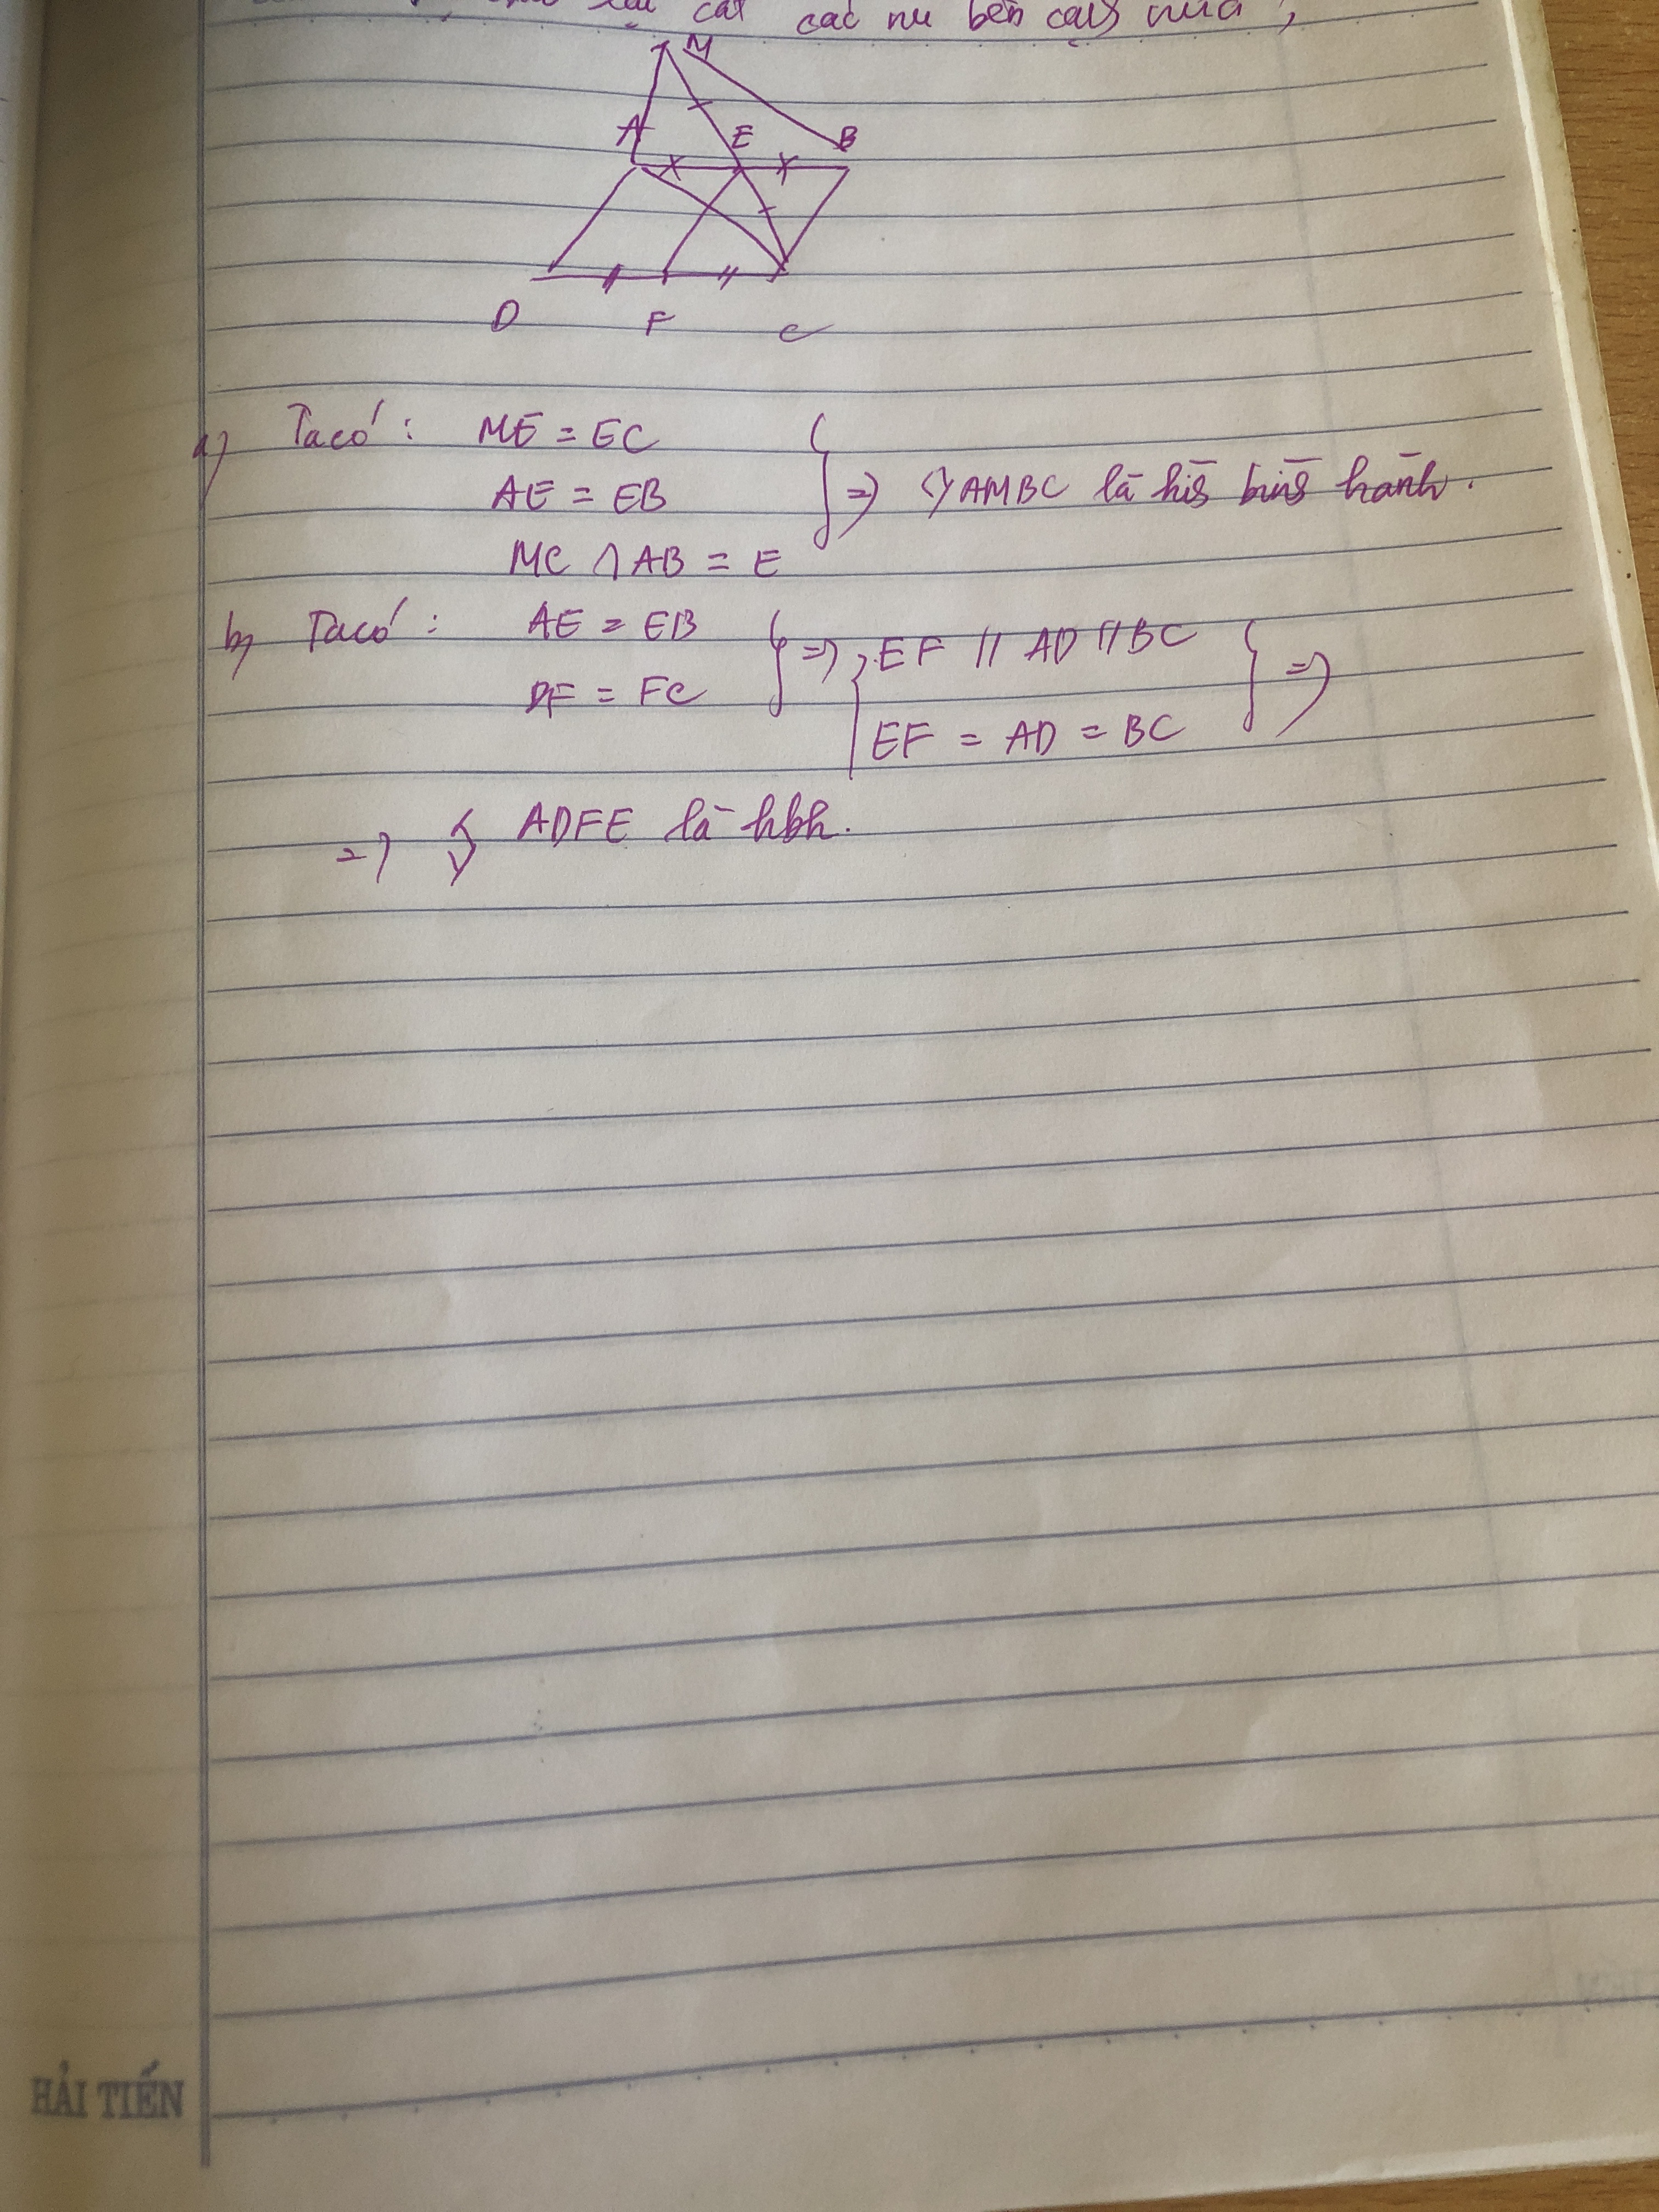 cắt các nu bên cạnh nữa,
M
A E B
D F C
a) Ta có: ME = EC
AE = EB } => ◊ AMBC là hìh bìh hành.
MC ∩ AB = E
b) Ta có: AE = EB } => { EF // AD // BC } =>
DF = FC
EF = AD = BC
=> ◊ ADFE là hbh.
HẢI TIẾN